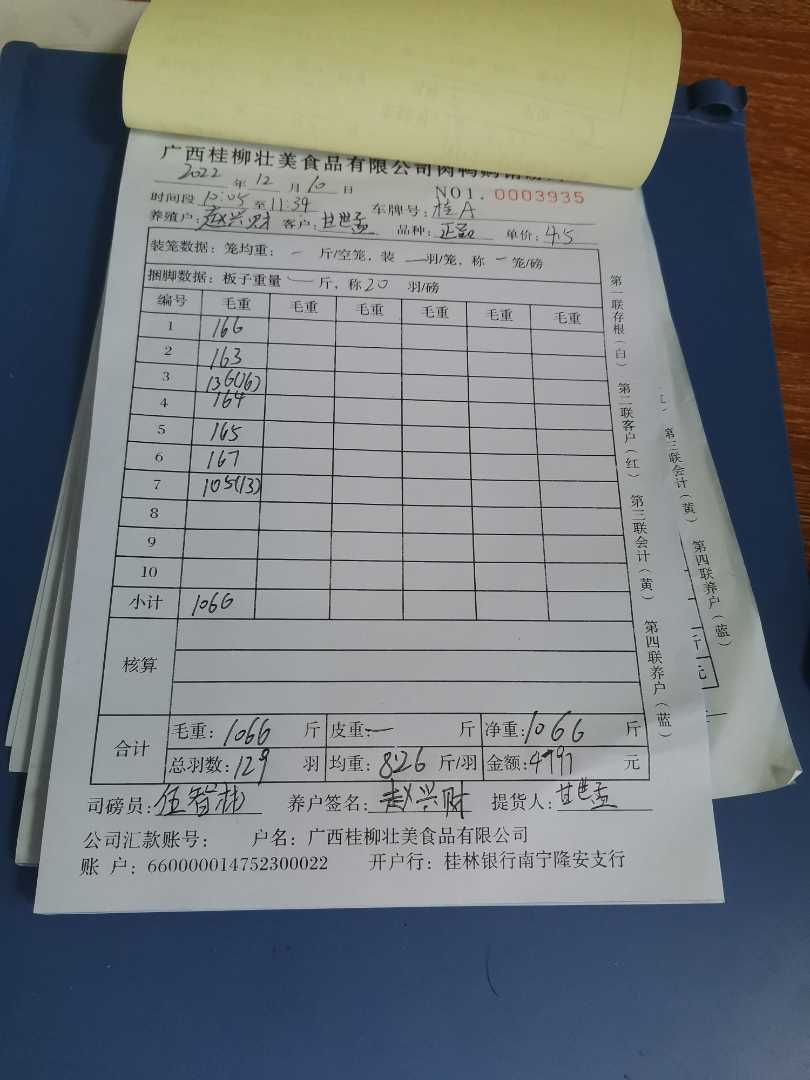 广西桂柳壮美食品有限公司肉鸭购销
2022 年 12 月 10 日 NO1. 0003935
时间段 10:05 至 11:39 车牌号: 桂A
养殖户: 赵兴财 客户: 甘世孟 品种: 单价: 4.5
装笼数据: 笼均重: 一 斤/空笼, 装 一 羽/笼, 称 一 笼/磅
捆脚数据: 板子重量 一 斤, 称 20 羽/磅
编号 毛重 毛重 毛重 毛重 毛重 毛重
1 166
2 163
3 136(16)
4 164
5 165
6 167
7 105(13)
8
9
10
小计 1066
核算
合计 毛重: 1066 斤 皮重: 一 斤 净重: 1066 斤
总羽数: 129 羽 均重: 8.26 斤/羽 金额: 4797 元
司磅员: 伍智林 养户签名: 赵兴财 提货人: 甘世孟
公司汇款账号: 户名: 广西桂柳壮美食品有限公司
账 户: 660000014752300022 开户行: 桂林银行南宁隆安支行
第一联存根(白) 第二联客户(红) 第三联会计(黄) 第四联养户(蓝)
第三联会计(黄) 第四联养户(蓝)
斤
元